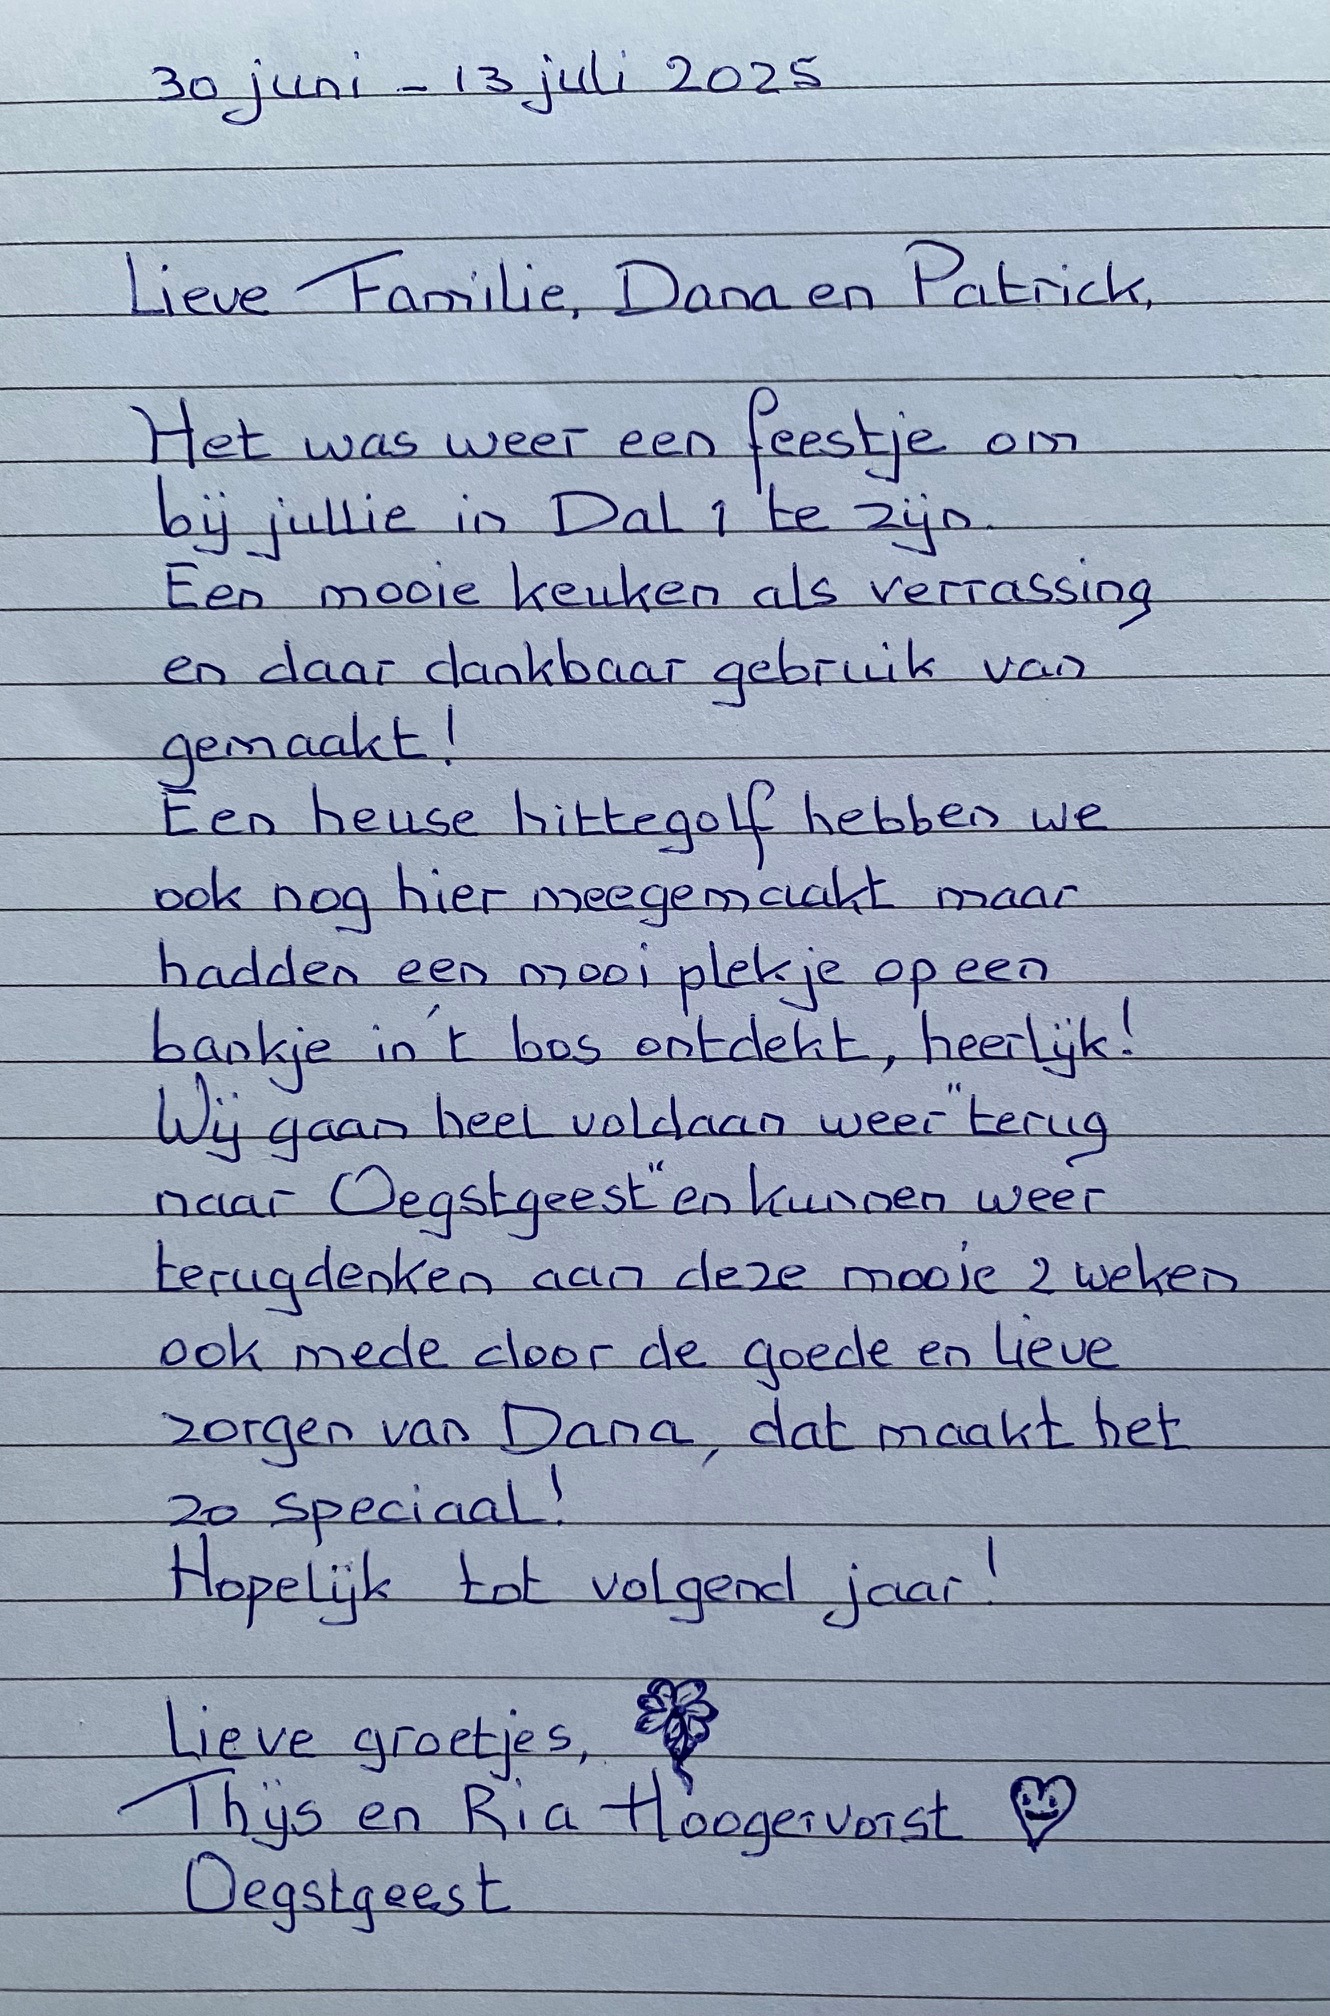 30 juni - 13 juli 2025
Lieve Familie, Dana en Patrick,
Het was weer een feestje om
bij jullie in Dal 1 te zijn.
Een mooie keuken als verrassing
en daar dankbaar gebruik van
gemaakt!
Een heuse hittegolf hebben we
ook nog hier meegemaakt maar
hadden een mooi plekje op een
bankje in 't bos ontdekt, heerlijk!
Wij gaan heel voldaan weer "terug
naar Oegstgeest" en kunnen weer
terugdenken aan deze mooie 2 weken
ook mede door de goede en lieve
zorgen van Dana, dat maakt het
zo speciaal!
Hopelijk tot volgend jaar!
Lieve groetjes,
Thijs en Ria Hoogervorst
Oegstgeest